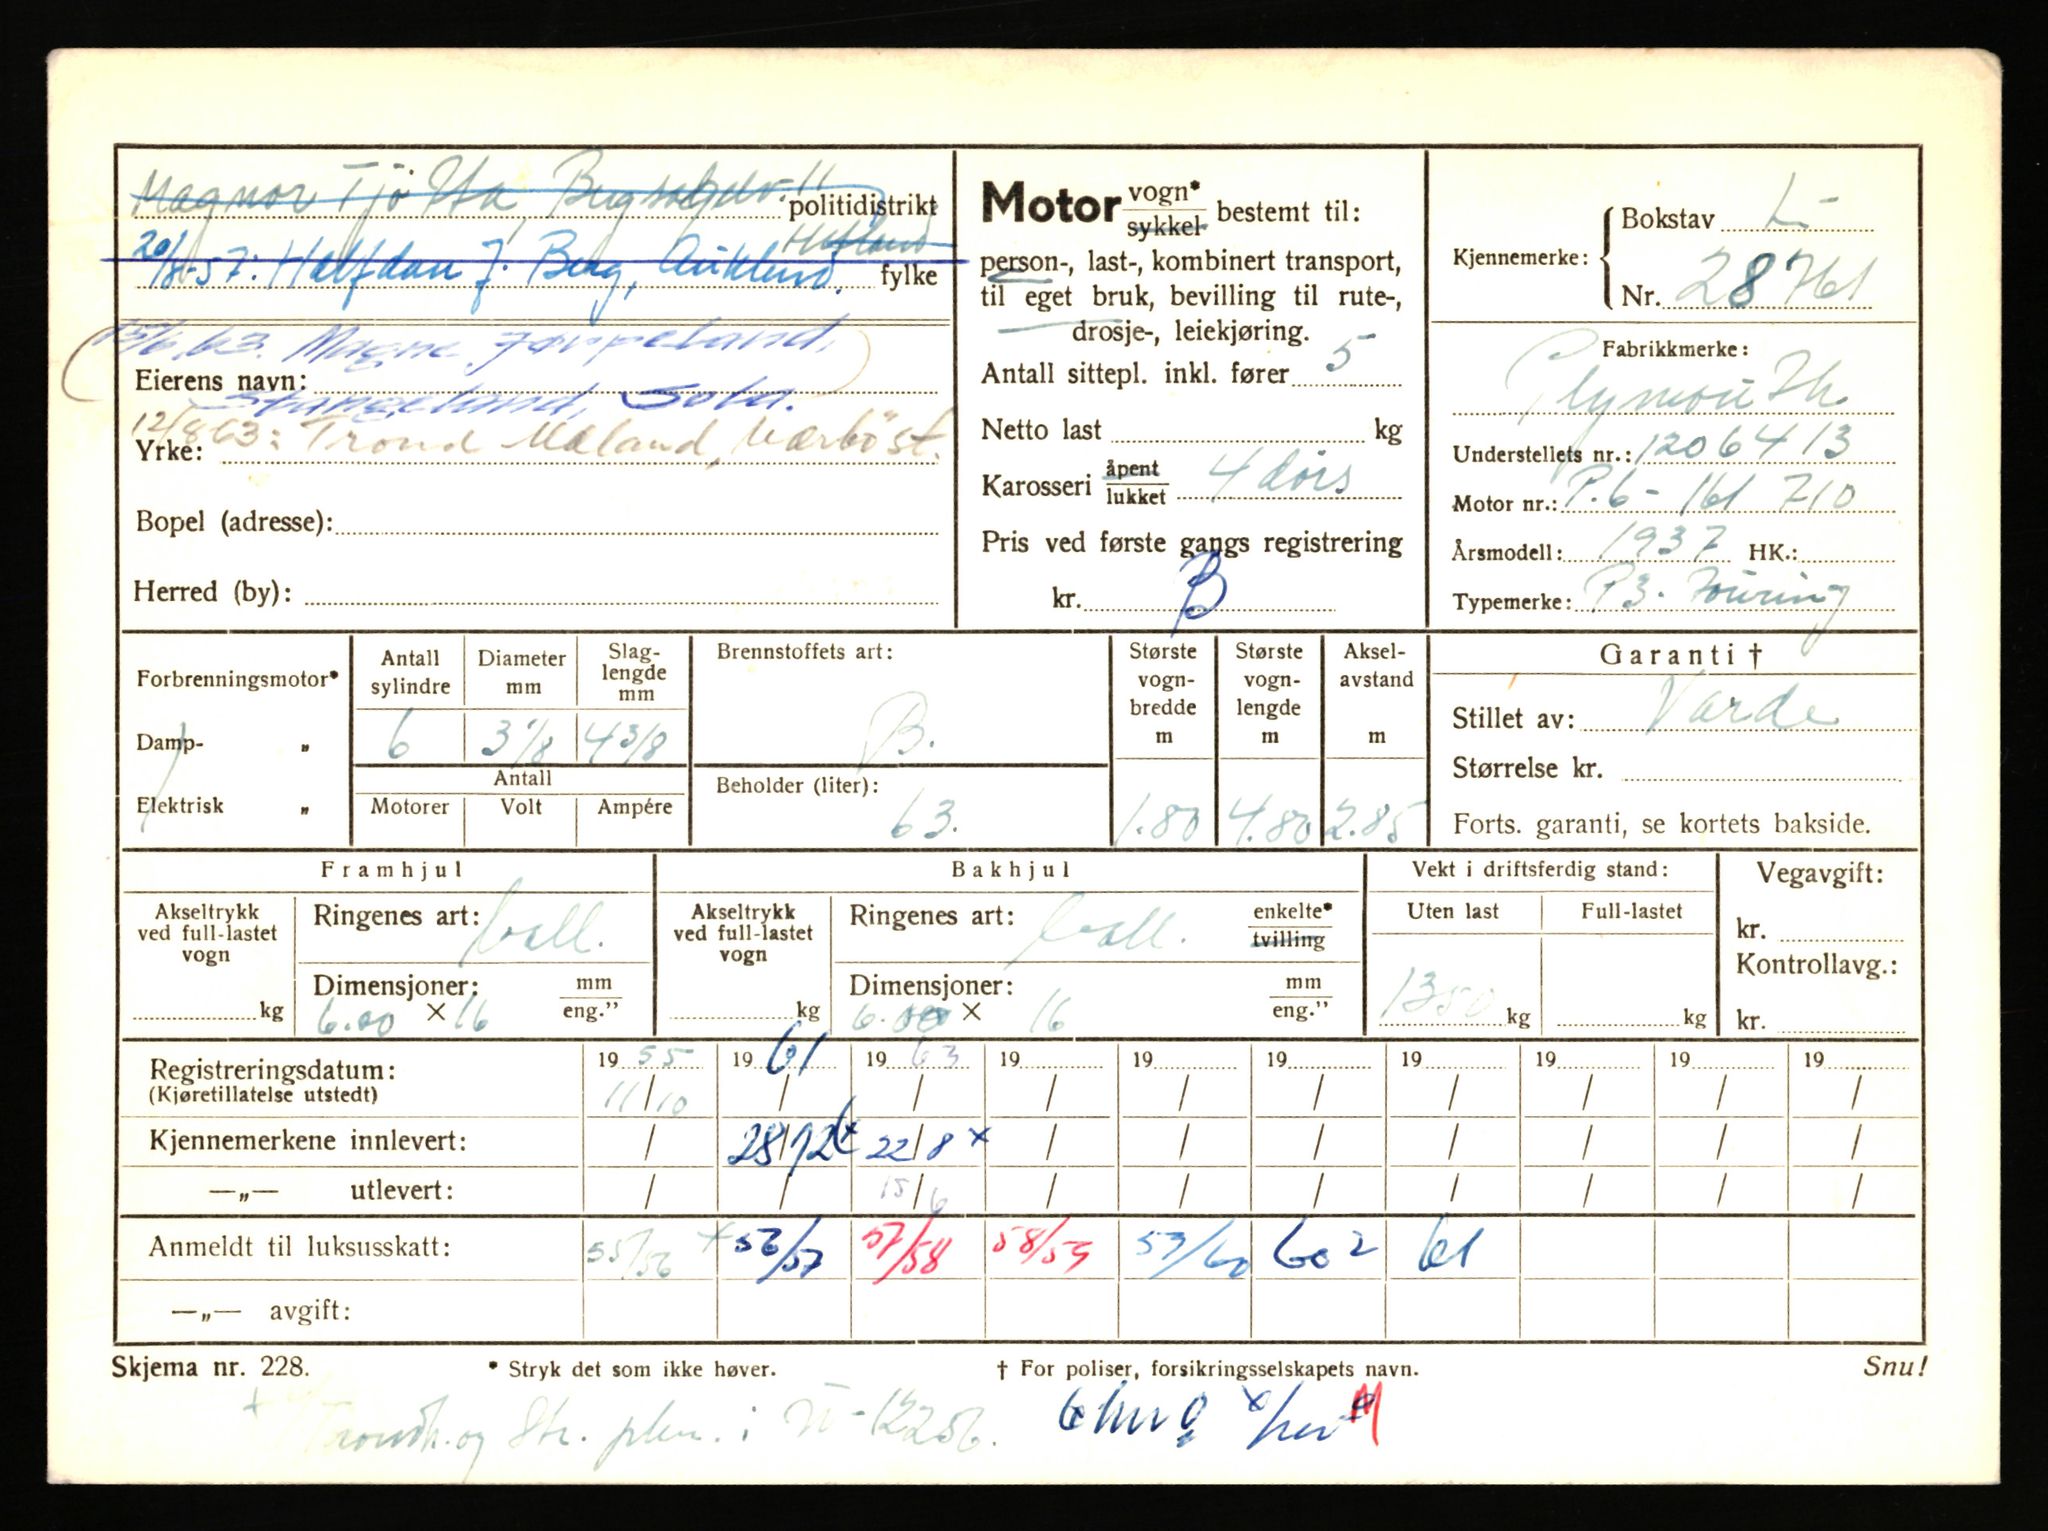 Magnor Tjötta, politidistrikt
20/8-57: Halfdan J. Berg, Auklend. fylke
15/6.63. Magne Jørpeland,
Eierens navn:
Stangeland, Sola.
12/8 63: Trond Mæland, Nærbö st.
Yrke:
Bopel (adresse):
Herred (by):
Motor vogn* / sykkel bestemt til:
person-, last-, kombinert transport,
til eget bruk, bevilling til rute-,
drosje-, leiekjøring.
Antall sittepl. inkl. fører 5
Netto last kg
Karosseri åpent / lukket 4 dørs
Pris ved første gangs registrering
kr. B
Kjennemerke: Bokstav L-
Nr. 28761
Fabrikkmerke:
Plymouth
Understellets nr.: 1206413
Motor nr.: P.6-161 710
Årsmodell: 1937 HK.:
Typemerke: P3. Touring
Forbrenningsmotor*
Damp- „
Elektrisk „
Antall sylindre 6
Diameter mm 3 1/8
Slaglengde mm 4 3/8
Antall
Motorer Volt Ampére
Brennstoffets art:
B.
Beholder (liter):
63.
Største vognbredde m 1.80
Største vognlengde m 4.80
Akselavstand m 2.85
Garanti †
Stillet av: Varde
Størrelse kr.
Forts. garanti, se kortets bakside.
Framhjul
Akseltrykk ved full-lastet vogn kg
Ringenes art: ball.
Dimensjoner: mm / eng."
6.00 × 16
Bakhjul
Akseltrykk ved full-lastet vogn kg
Ringenes art: ball. enkelte* / tvilling
Dimensjoner: mm / eng."
6.00 × 16
Vekt i driftsferdig stand:
Uten last Full-lastet
1350 kg kg
Vegavgift:
kr.
Kontrollavg.:
kr.
Registreringsdatum: 1955 1961 1963 19 19 19 19 19 19 19
(Kjøretillatelse utstedt) 11/10 / / / / / / / / /
Kjennemerkene innlevert: / 28/12 x 22/8 x / / / / / / /
—„— utlevert: / / 15/6 / / / / / / /
Anmeldt til luksusskatt: 55/56 + 56/57 57/58 58/59 59/60 60 2 61
—„— avgift:
Skjema nr. 228. * Stryk det som ikke høver. † For poliser, forsikringsselskapets navn. Snu!
+ Trondh. og Str. i